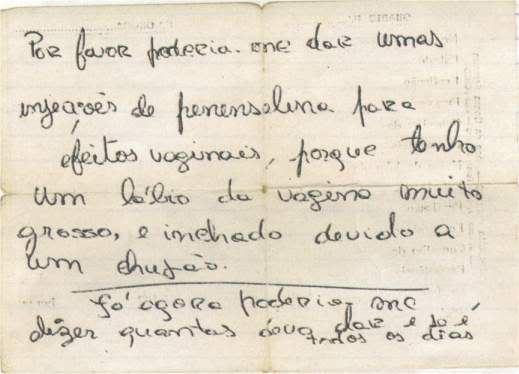 Por favor poderia-me dar umas
injeções de penenselina para
efeitos vaginais, porque tenho
um lábio da vagina muito
grosso, e inchado devido a
um chupão.
Já agora poderia-me
dizer quantas devo dar e se é
todos os dias